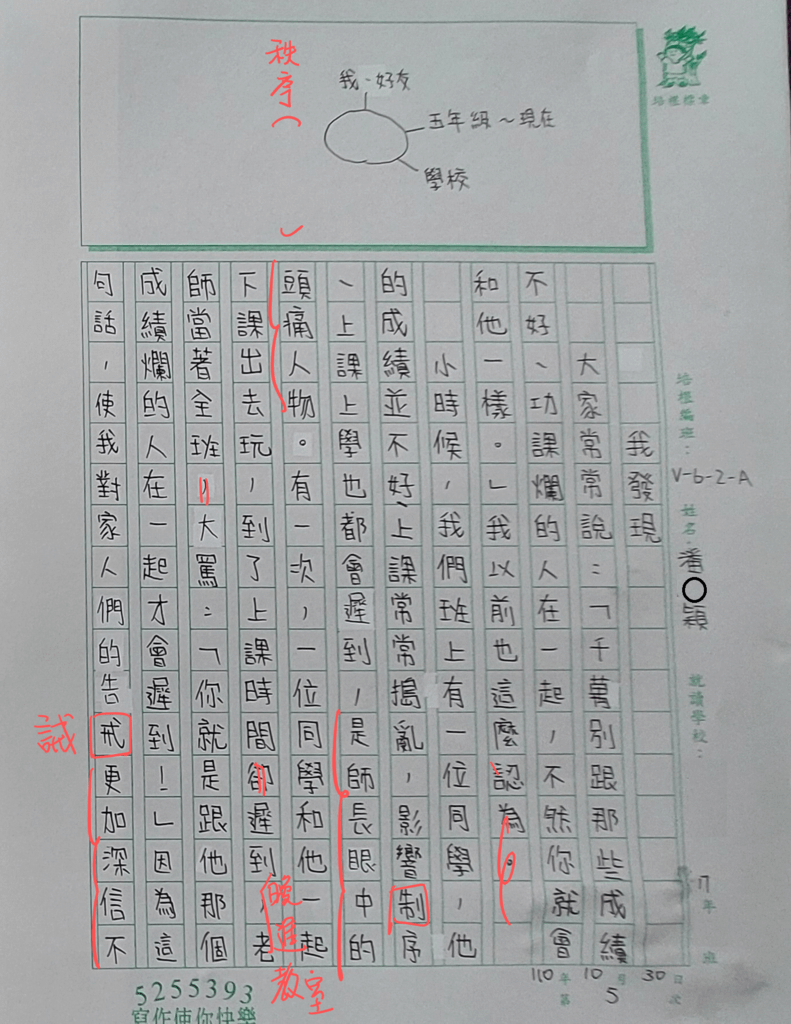 培根標章
我、好友
五年級～現在
學校
秩序
培根編班：V-6-2-A
姓名：潘○穎
就讀學校：
年 班
110年10月30日
第5次
我發現
大家常常說：「千萬別跟那些成績
不好、功課爛的人在一起，不然你就會
和他一樣。」我以前也這麼認為。
小時候，我們班上有一位同學，他
的成績並不好、上課常常搗亂，影響制序
、上課上學也都會遲到，是師長眼中的
頭痛人物。有一次，一位同學和他一起
下課出去玩，到了上課時間卻遲到，老
師當著全班，大罵：「你就是跟他那個
成績爛的人在一起才會遲到！」因為這
句話，使我對家人們的告戒更加深信不
晚進教室
誡
5255393
寫作使你快樂